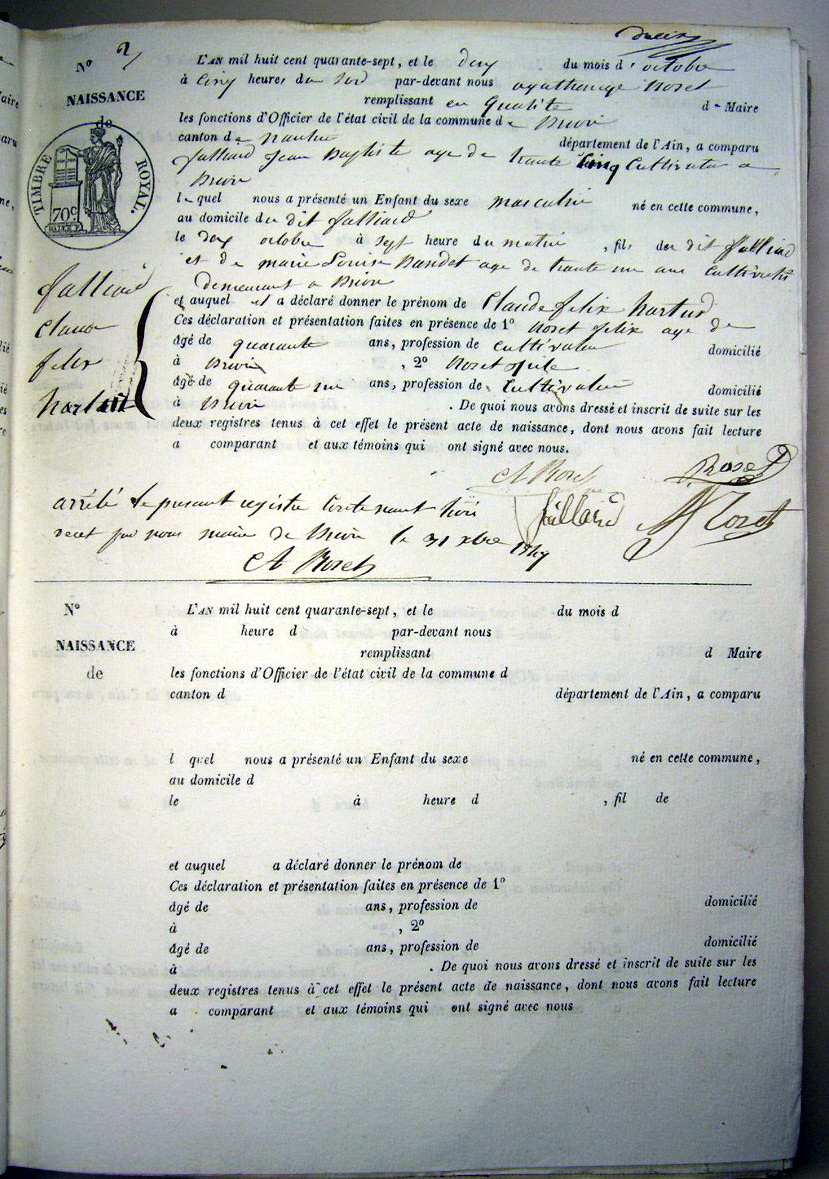 Nº 2
L'AN mil huit cent quarante-sept, et le dix du mois d' octobre
NAISSANCE
de
à cinq heures du soir par-devant nous agathange Roset
remplissant en qualité de Maire
les fonctions d'Officier de l'état civil de la commune de Brion
canton de nantua département de l'Ain, a comparu
falliard Jean Baptiste age de trante cinq Cultivateur a
Brion
TIMBRE ROYAL.
70c
lequel nous a présenté un Enfant du sexe masculin né en cette commune,
au domicile du dit falliard
le dix octobre à sept heure du matin , fils du dit falliard
et de marie Louise Bandet age de trante un ans Cultivatr
demeurant a Brion
falliard
Claude
felix
et auquel il a déclaré donner le prénom de Claude felix
Ces déclaration et présentation faites en présence de 1º Roset felix age de
âgé de quarante ans, profession de cultivateur domicilié
à Brion , 2º Roset
âgé de quarant un ans, profession de Cultivateur domicilié
à Brion . De quoi nous avons dressé et inscrit de suite sur les
deux registres tenus à cet effet le présent acte de naissance, dont nous avons fait lecture
a comparant et aux témoins qui ont signé avec nous.
A Roset Roset
arrêté le present registre
falliard Roset
par nous maire de Brion le 31 xbre 1847
A Roset
Nº
L'AN mil huit cent quarante-sept, et le du mois d
NAISSANCE
de
à heure d par-devant nous
remplissant d Maire
les fonctions d'Officier de l'état civil de la commune d
canton d département de l'Ain, a comparu
l quel nous a présenté un Enfant du sexe né en cette commune,
au domicile d
le à heure d , fil de
et auquel a déclaré donner le prénom de
Ces déclaration et présentation faites en présence de 1º
âgé de ans, profession de domicilié
à , 2º
âgé de ans, profession de domicilié
à . De quoi nous avons dressé et inscrit de suite sur les
deux registres tenus à cet effet le présent acte de naissance, dont nous avons fait lecture
a comparant et aux témoins qui ont signé avec nous